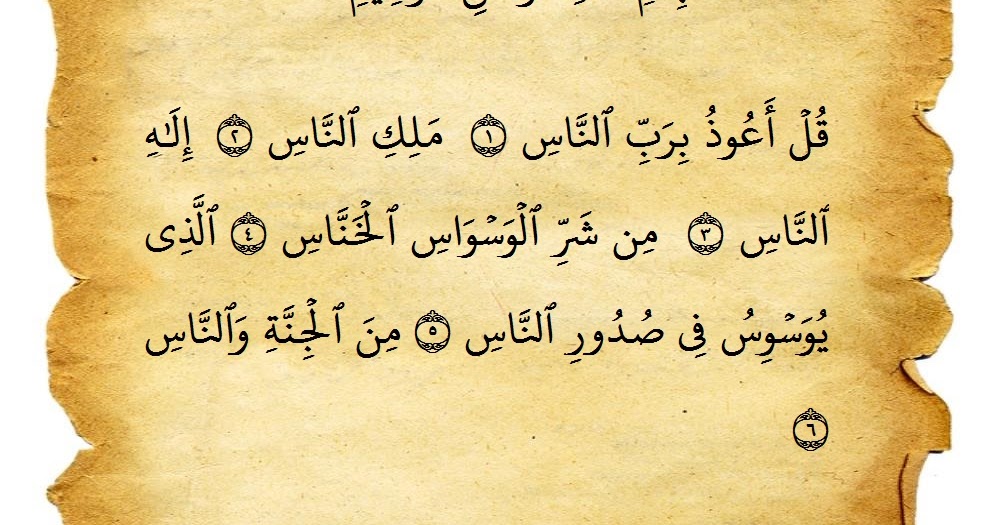 قُلۡ أَعُوذُ بِرَبِّ ٱلنَّاسِ ١ مَلِكِ ٱلنَّاسِ ٢ إِلَٰهِ
ٱلنَّاسِ ٣ مِن شَرِّ ٱلۡوَسۡوَاسِ ٱلۡخَنَّاسِ ٤ ٱلَّذِى
يُوَسۡوِسُ فِى صُدُورِ ٱلنَّاسِ ٥ مِنَ ٱلۡجِنَّةِ وَٱلنَّاسِ
٦